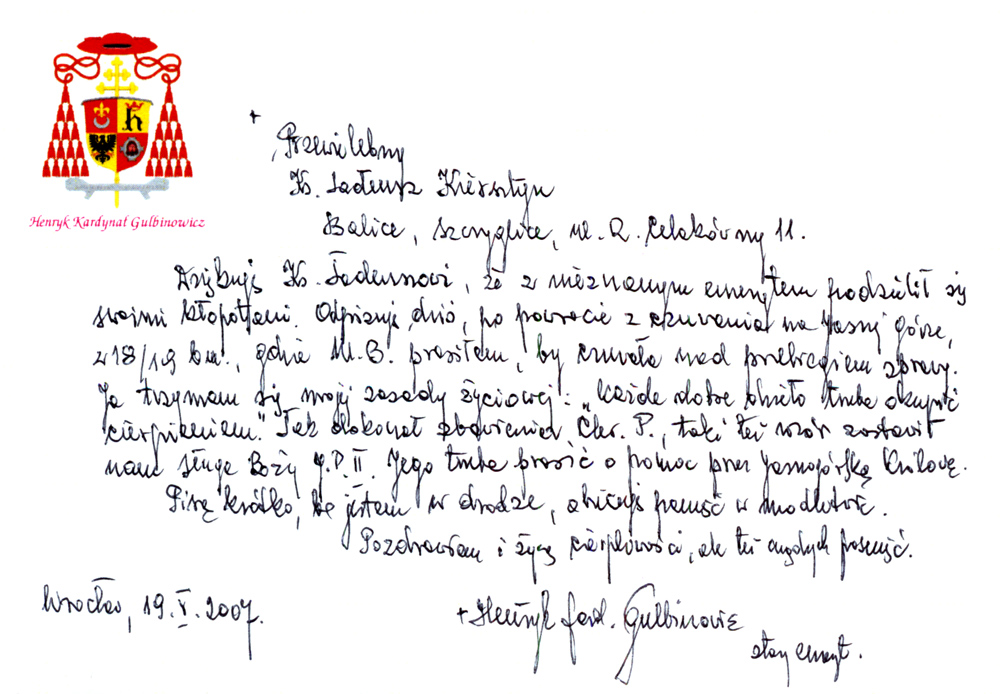 Henryk Kardynał Gulbinowicz
+
Przewielebny
Ks. Tadeusz Kiersztyn
Balice, Szczyglice, ul. R. Celakówny 11.
Dziękuję Ks. Tadeuszowi, że z nieznanym emerytem podzielił się
swoimi kłopotami. Odpisuję dziś, po powrocie z czuwania na Jasnej Górze,
z 18/19 bm., gdzie M.B. prosiłem, by czuwała nad przebiegiem sprawy.
Ja trzymam się mojej zasady życiowej: „każde dobre dzieło trzeba okupić
cierpieniem." Tak dokonał zbawienia Chr. P., taki też wzór zostawił
nam Sługa Boży J.P. II. Jego trzeba prosić o pomoc przez Jasnogórską Królowę.
Piszę krótko, bo jestem w drodze, obiecuję pamięć w modlitwie.
Pozdrawiam i życzę cierpliwości, ale też
Wrocław, 19.V.2007.
+ Henryk Gulbinowicz
stary emeryt.